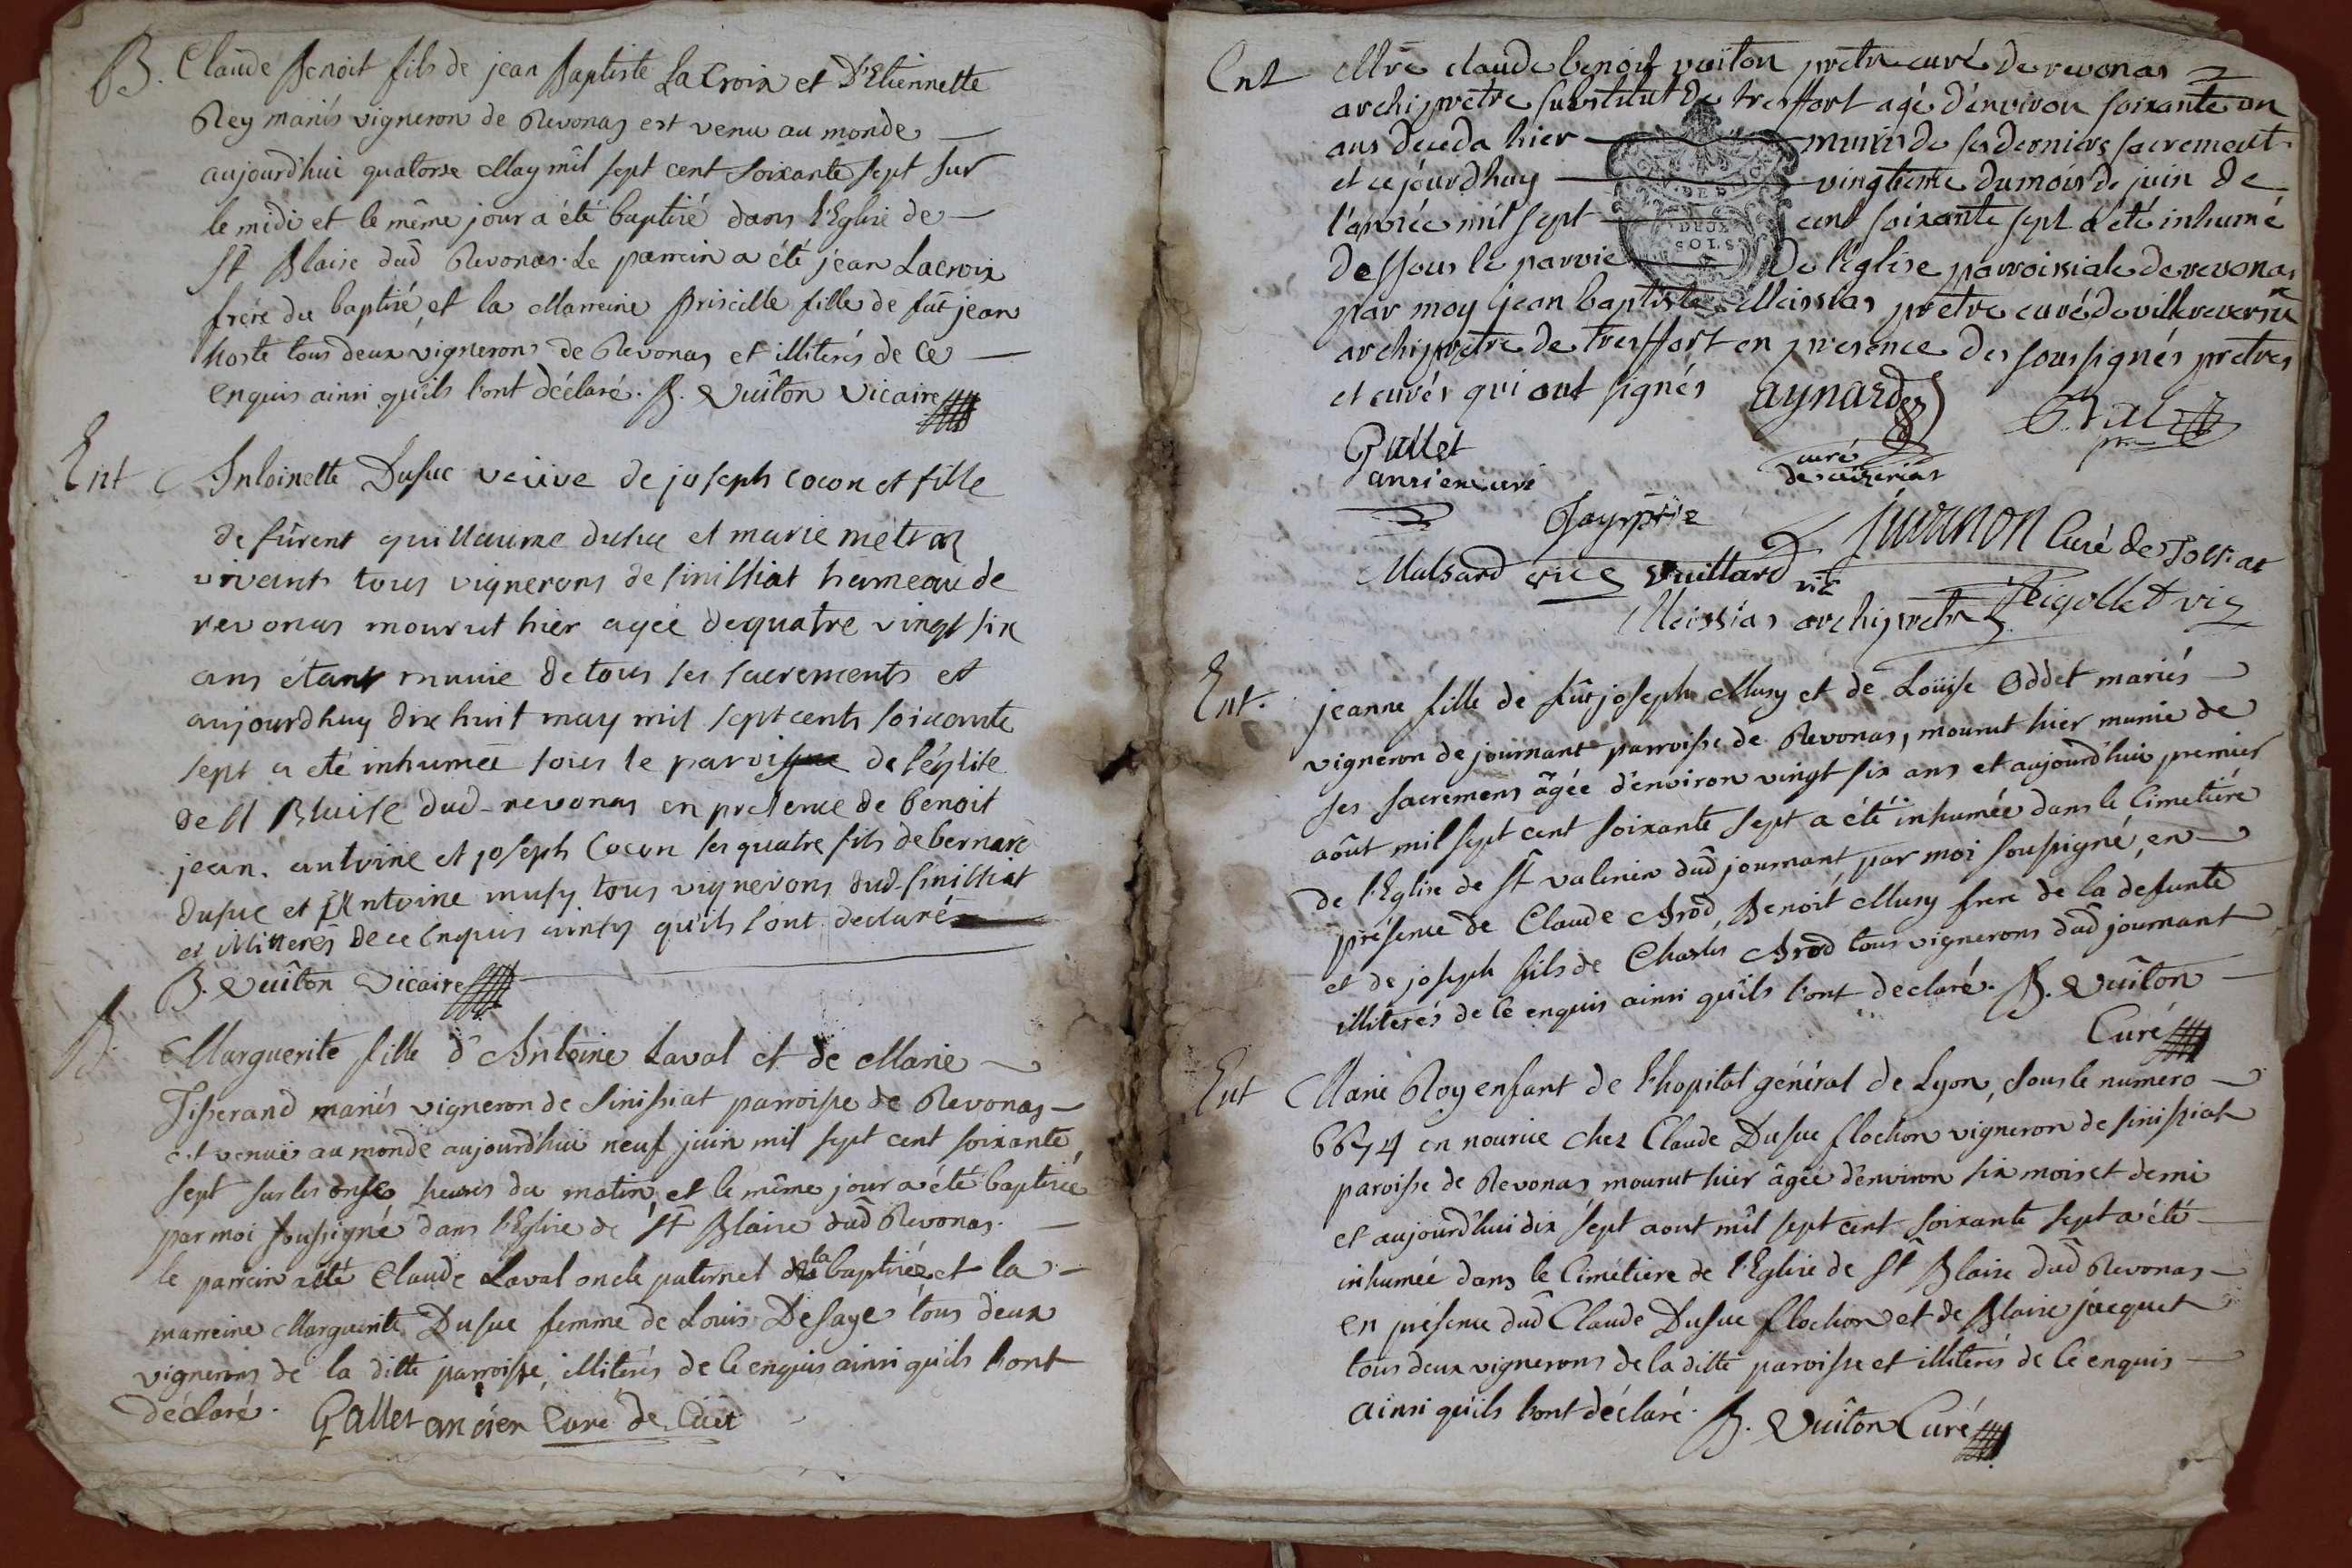 B. Claude Benoit fils de jean Baptiste La Croix et D'Etiennette
Rey mariés vigneron de Revonas est venu au monde
aujourd'hui quatorse May mil sept cent soixante sept sur
le midi et le même jour a été baptisé dans l'Eglise de
St Blaise dud Revonas. Le parrein a été jean Lacroix
frère du baptisé, et la Marreine Priscille fille de fût jean
hoste tous deux vignerons de Revonas et illiterés de ce
enquis ainsi qu'ils l'ont déclaré. B. Vuiton Vicaire
Ent Antoinette Dusuc veuve de joseph cocon et fille
de fûrent guillaume dusuc et marie metral
vivants tous vignerons de sinissiat hameau de
revonas mourut hier agée de quatre vingt six
ans étant munie de tous ses sacrements et
aujourdhuy dix huit may mil sept cents soixante
sept a eté inhumée sous le parvis de l'église
de st Blaise dud revonas en presence de benoit
jean. antoine et joseph Cocon ses quatre fils de bernard
dusuc et Antoine musy tous vignerons dud sinissiat
et illitterés de ce enquis ainsy qu'ils l'ont declaré
B. Vuiton Vicaire
B. Marguerite fille d'Antoine Laval et de Marie
Tisserand mariés vigneron de Sinissiat parroisse de Revonas
est venuë au monde aujourd'hui neuf juin mil sept cent soixante
sept sur les onse heures du matin, et le même jour a été baptisée
par moi soussigné dans l'Eglise de St Blaise dud Revonas.
le parrein a été Claude Laval oncle paternel de la baptisée et la
marreine Marguerite Dusuc femme de Louis Desaye tous deux
vignerons de la ditte parroisse, illiterés de ce enquis ainsi qu'ils l'ont
déclaré. Gallet ancien Curé de Cuet
Ent Mre claude benoit vuiton prêtre curé de revonas
archiprêtre substitut de tresffort agé d'environ soixante un
ans deceda hier munis de ses derniers sacrement
et ce jourdhuy vingtieme du mois de juin de
l'année mil sept cent soixante sept a été inhumé
dessous le parvie de l'eglise parroissiale de revonas
par moy jean baptiste Meissias prêtre curé de villereversure
archiprêtre de tresffort en presence des soussignés prêtres
et curés qui ont signés aynard
DEUX
SOLS
Gallet
ansien curé
curé
de cuizerias
Juvanon Curé de Tossiat
Malsard vic Vuillard vic
Meissias archiprêtre Pigollet vic
Ent. jeanne fille de fût joseph Musy et de Loüise Oddet mariés
vigneron de journant parroisse de Revonas, mourut hier munie de
ses sacremens âgée d'environ vingt six ans et aujourd'hui premier
aôut mil sept cent soixante sept a été inhumée dans le Cimetière
de l'Eglise de St valerien dud journant par moi soussigné, en
présence de Claude Arod, Benoit Musy frere de la defunte
et de joseph fils de Charles Arod tous vignerons dud journant
illiterés de ce enquis ainsi qu'ils l'ont declaré. B. Vuiton
Curé
Ent Marie Roy enfant de l'hopital général de Lyon, sous le numero
6674 en nourice chez Claude Dusuc flochon vigneron de sinissiat
paroisse de Revonas mourut hier âgée d'environ six mois et demi
et aujourd'hui dix sept aout mil sept cent soixante sept a été
inhumée dans le Cimétiere de l'Eglise de St Blaise dud Revonas
en présence dud Claude Dusuc flochon et de Blaise jacquet
tous deux vignerons de la ditte paroisse et illiterés de ce enquis
ainsi qu'ils l'ont déclaré. B. Vuiton Curé